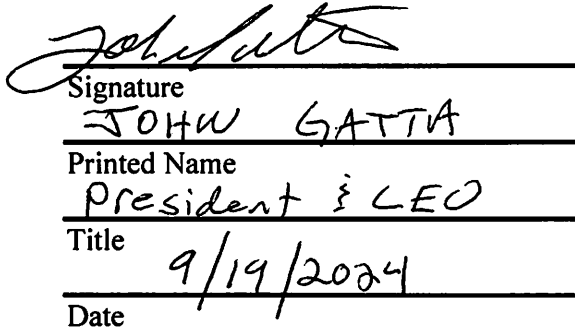 John Gatta
Signature
JOHN GATTA
Printed Name
President & CEO
Title
9/19/2024
Date